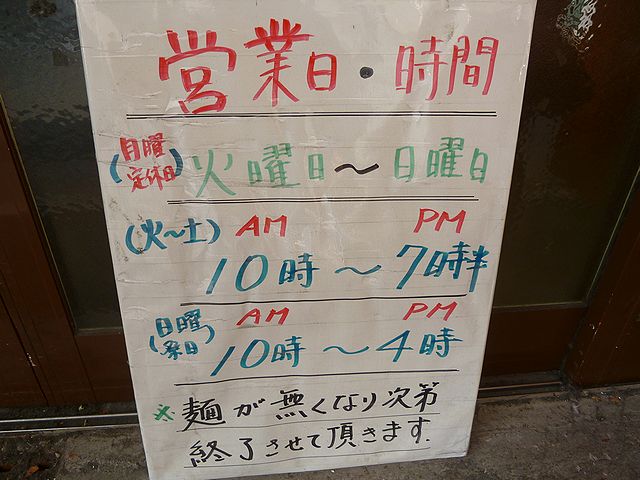 営業日・時間
(月曜定休日) 火曜日〜日曜日
(火〜土) AM PM
10時〜7時半
(日曜祭日) AM PM
10時〜4時
※麺が無くなり次第
終了させて頂きます.